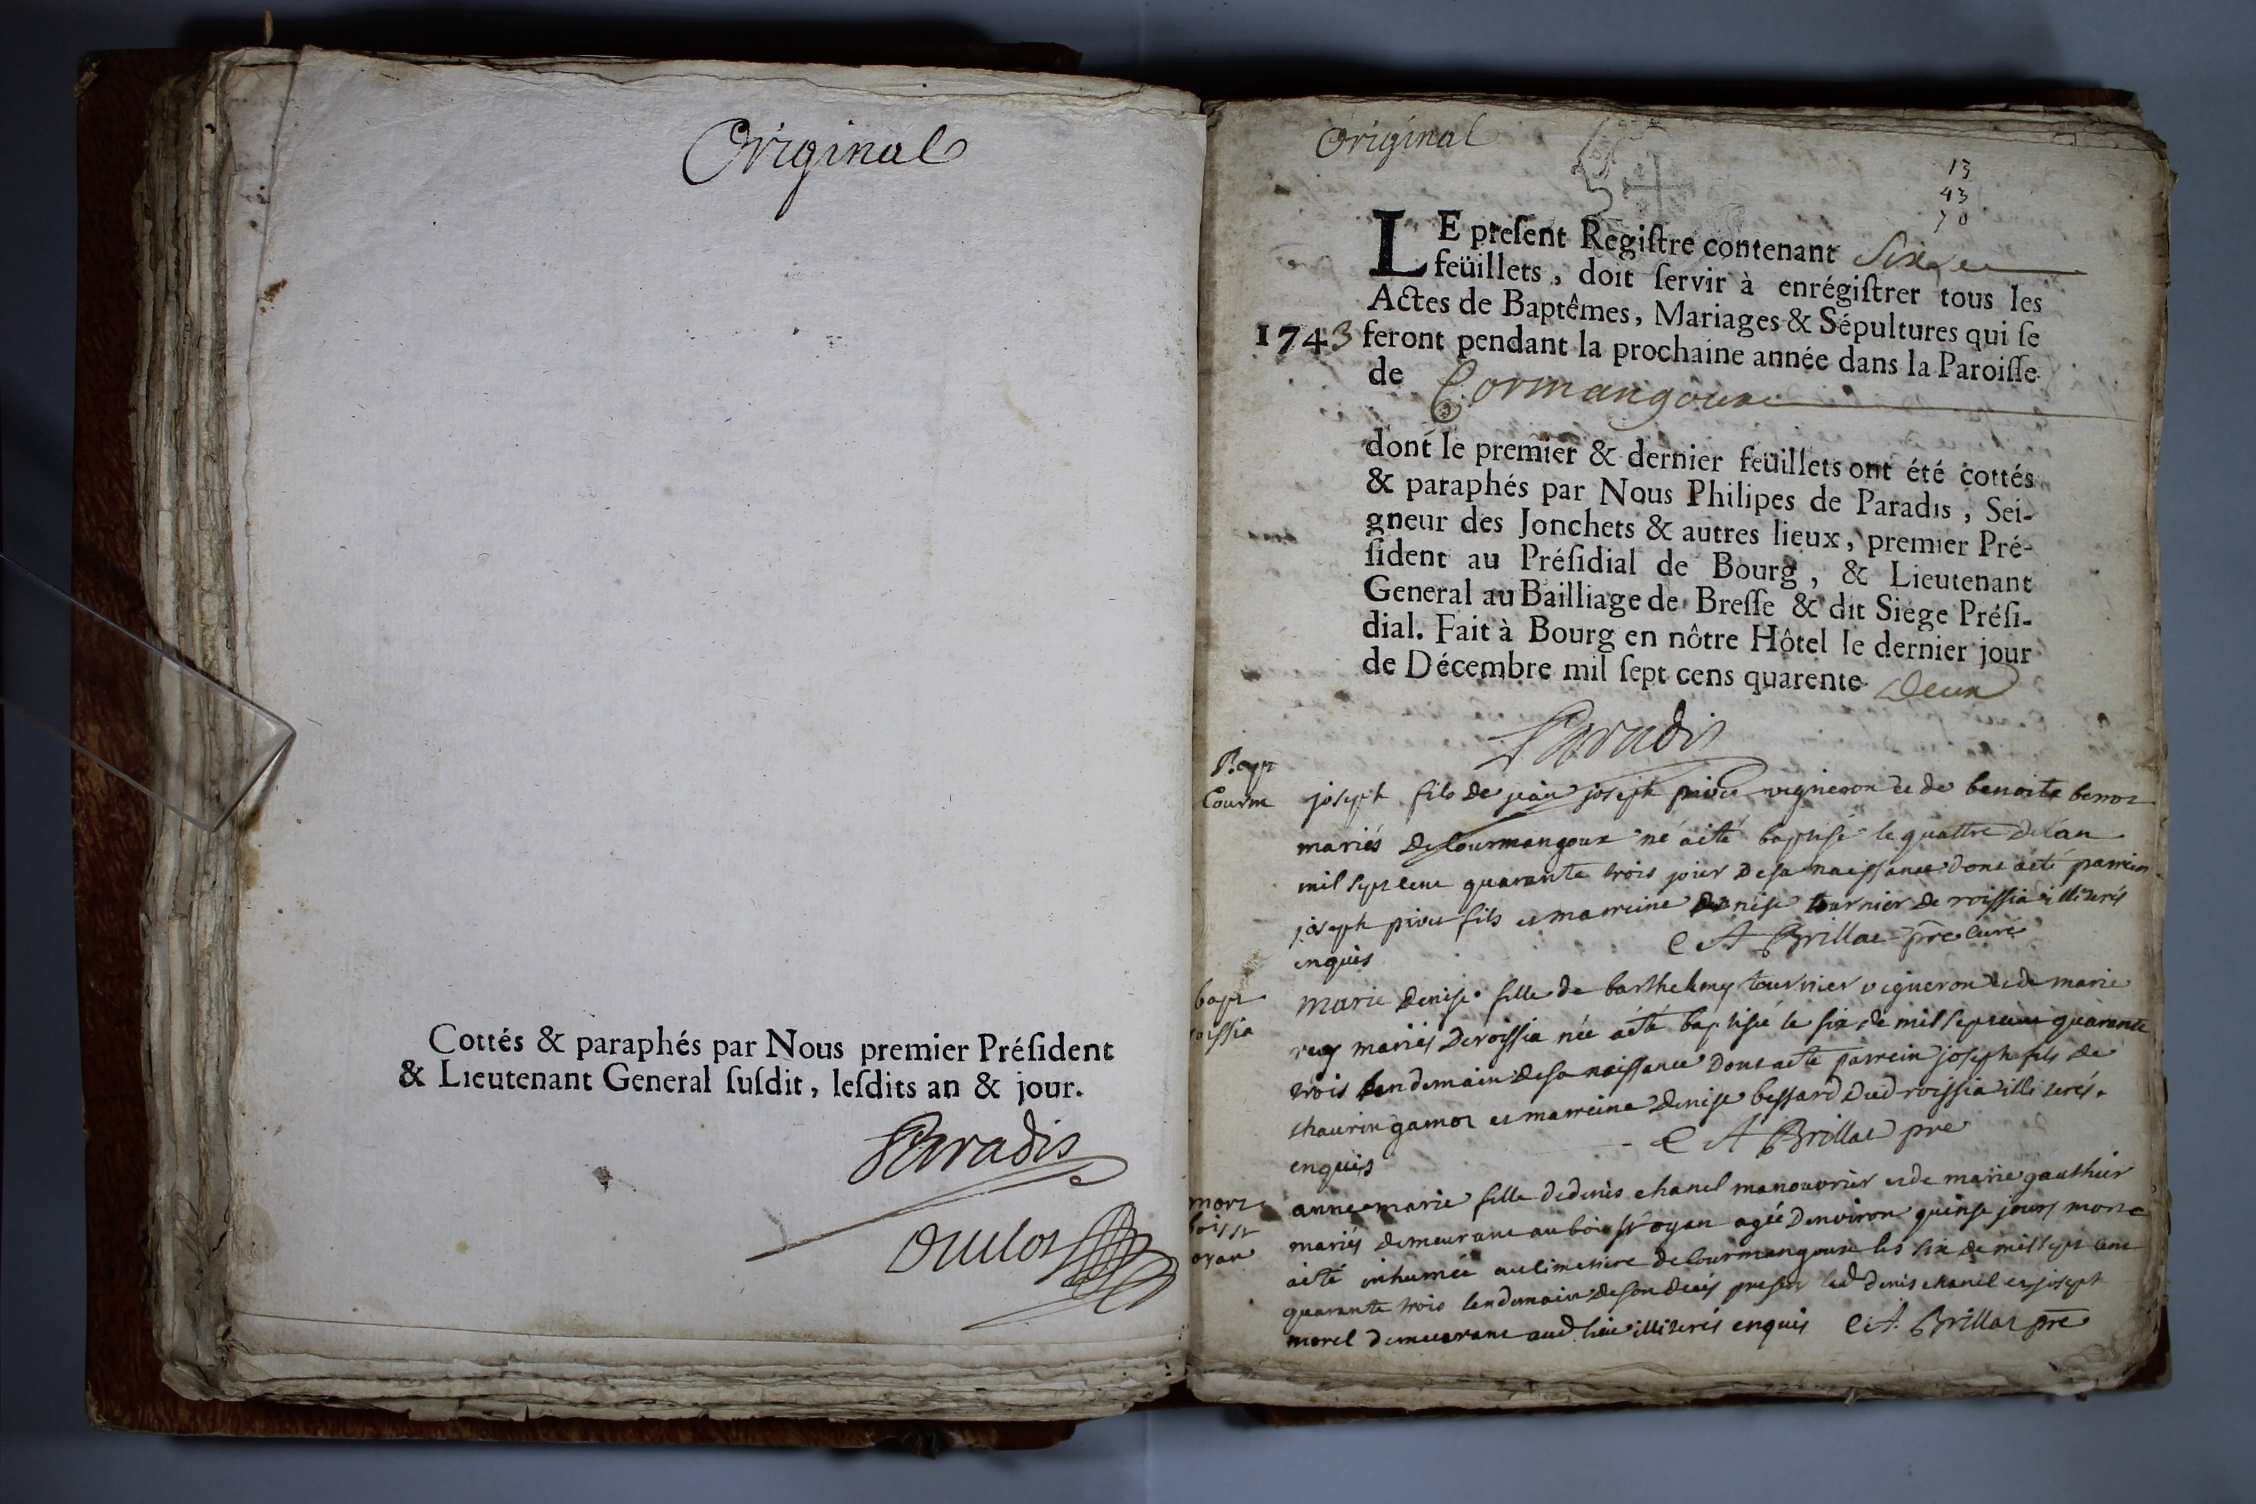 Original
Cottés & paraphés par Nous premier Préſident
& Lieutenant General ſuſdit, leſdits an & jour.
Paradis
Original
13
43
70
LE preſent Regiſtre contenant Six
feüillets, doit ſervir à enrégiſtrer tous les
Actes de Baptêmes, Mariages & Sépultures qui ſe
1743 feront pendant la prochaine année dans la Paroiſſe
de Cormangoux
dont le premier & dernier feüillets ont été cottés
& paraphés par Nous Philipes de Paradis, Sei-
gneur des Jonchets & autres lieux, premier Pré-
ſident au Préſidial de Bourg, & Lieutenant
General au Bailliage de Breſſe & dit Siége Préſi-
dial. Fait à Bourg en nôtre Hôtel le dernier jour
de Décembre mil ſept cens quarente deux
Paradis
Courm
joseph fils de jean joseph vigneron et de benoite
mariés de Courmangoux né a eté baptisé le quattre de l'an
mil sept cent quarante trois jour de sa naissance dont acte parrein
joseph fils et marreine denise tournier de roissia illiterés
enquis C A Brillat pre curé
bapt
roissia
marie denise fille de barthelemy tournier vigneron et de marie
rey mariés de roissia née a eté baptisée le six de mil sept cent quarante
trois lendemain de sa naissance dont acte parrein joseph fils de
et marreine denise bessard dud roissia illiterés
enquis C A Brillat pre
mort
bois st
oyan
anne marie fille de denis chanel manouvrier et de marie gauthier
mariés demeurant au bois st oyan agée d'environ quinse jours morte
a eté inhumée au cimetiere de Courmangoux le six de mil sept cent
quarante trois lendemain de son decés presens led denis chanel et joseph
morel demeurant aud lieu illiterés enquis C A Brillat pre